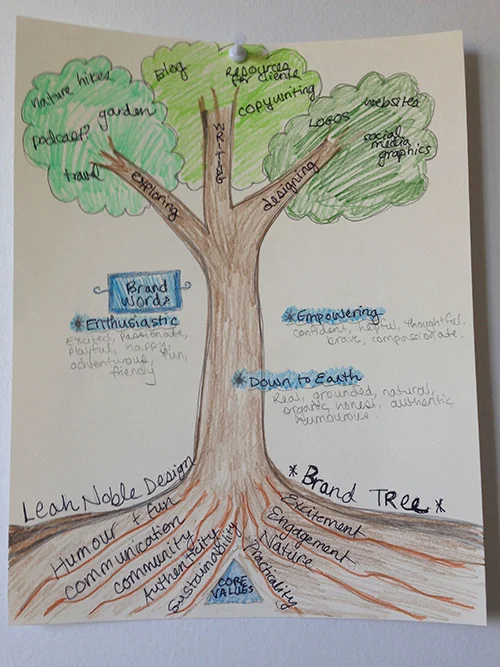 nature hikes
garden
podcast?
travel
Blog
Resources
for clients
copywriting
websites
LOGOS
social
media
graphics
exploring
WRITING
designing
Brand
Words
*Enthusiastic
Excited, passionate,
playful, happy,
adventurous, fun,
friendly
*Empowering
confident, helpful, thoughtful,
brave, compassionate.
*Down to Earth
Real, grounded, natural,
organic, honest, authentic,
humourous.
Leah Noble Design
* Brand TREE *
Humour + fun
communication
community
Authenticity
Sustainability
Excitement
Engagement
Nature
Practicality
CORE
VALUES